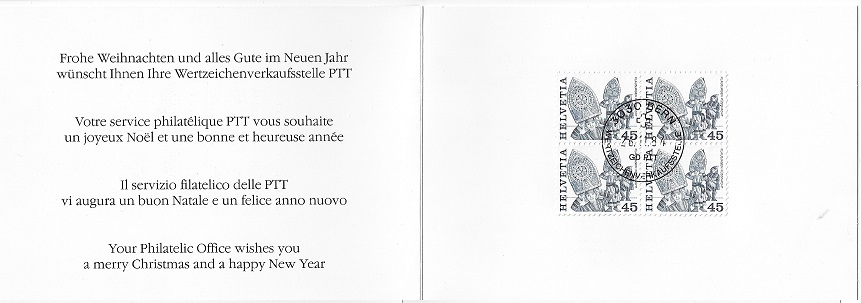 Frohe Weihnachten und alles Gute im Neuen Jahr
wünscht Ihnen Ihre Wertzeichenverkaufsstelle PTT
Votre service philatélique PTT vous souhaite
un joyeux Noël et une bonne et heureuse année
Il servizio filatelico delle PTT
vi augura un buon Natale e un felice anno nuovo
Your Philatelic Office wishes you
a merry Christmas and a happy New Year
HELVETIA 45
HELVETIA 45
HELVETIA 45
HELVETIA 45
3030 BERN
GD PTT
WERTZEICHENVERKAUFSSTELLE